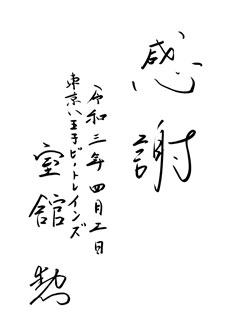 感謝
令和三年四月工日
東京八王子ビートレインズ
室舘勲